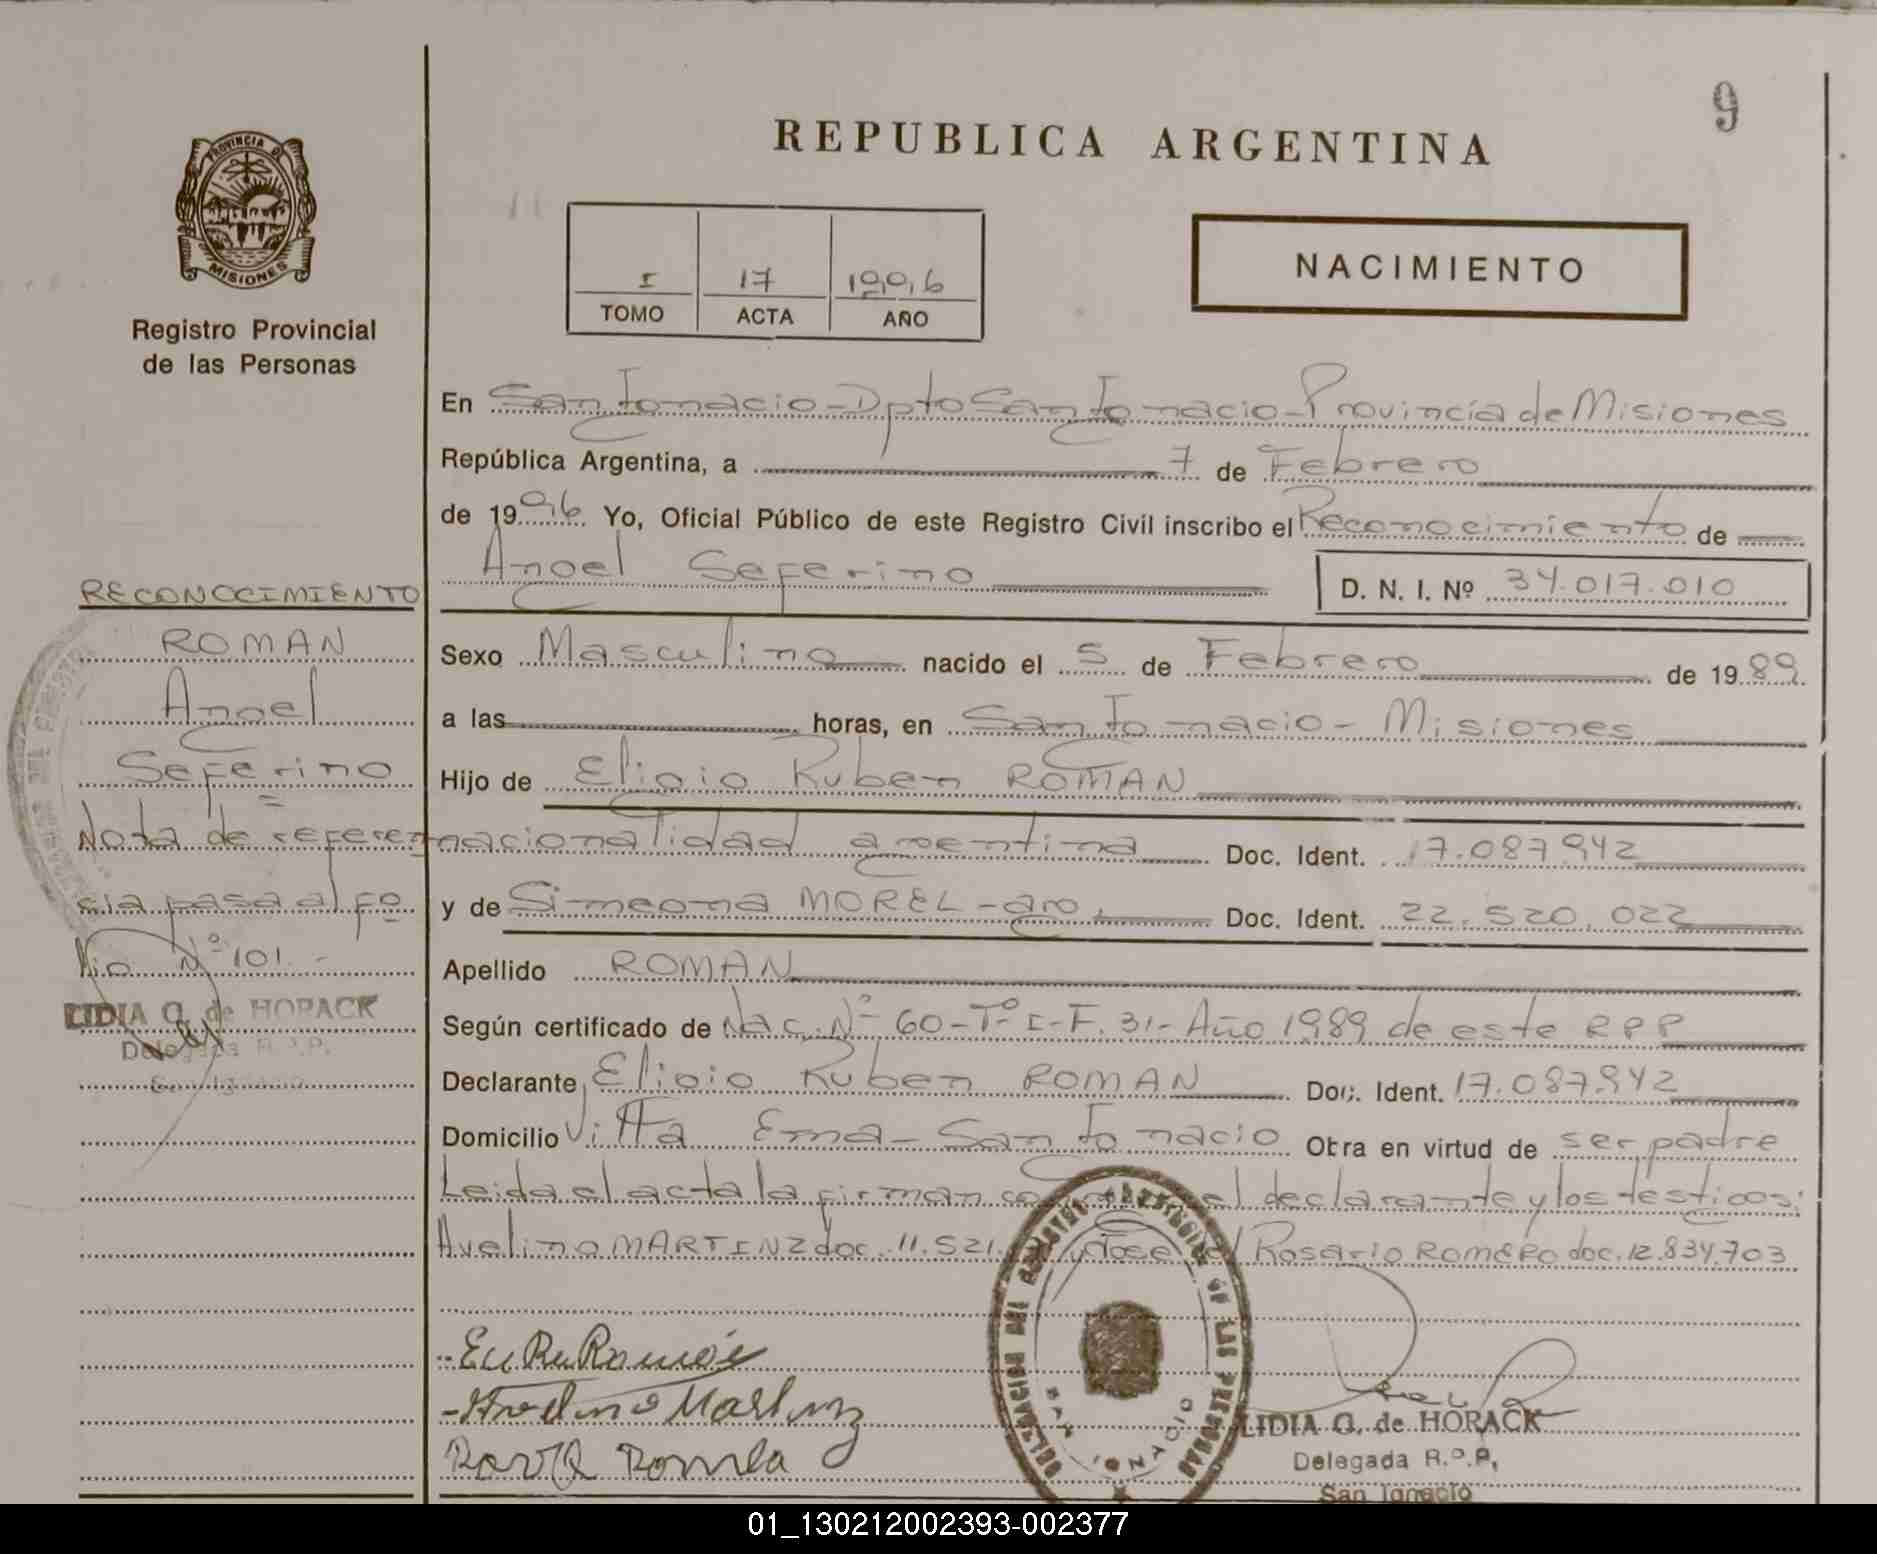 9
REPUBLICA ARGENTINA
PROVINCIA DE
MISIONES
Registro Provincial
de las Personas
I 17 1996
TOMO ACTA AÑO
NACIMIENTO
En San Ignacio - Dpto San Ignacio - Provincia de Misiones
República Argentina, a 7 de Febrero
de 1996 Yo, Oficial Público de este Registro Civil inscribo el Reconocimiento de
Angel Seferino
D. N. I. Nº 34.017.010
Sexo Masculino nacido el 5 de Febrero de 1989
a las horas, en San Ignacio - Misiones
Hijo de Eligio Ruben ROMAN
nacionalidad argentina Doc. Ident. 17.087.942
y de Simeona MOREL - arg. Doc. Ident. 22.520.022
Apellido ROMAN
Según certificado de Nac. Nº 60 - Tº I - F. 31 - Año 1989 de este R P P
Declarante Eligio Ruben ROMAN Doc. Ident. 17.087.942
Domicilio Villa Ema - San Ignacio Obra en virtud de ser padre
Leida el acta la firman el declarante y los testigos:
Avelino MARTINZ doc. 11.521. y Jose del Rosario ROMERO doc. 12.834.703
RECONOCIMIENTO
ROMAN
Angel
Seferino
Nota de referen
cia pasa al fo
lio Nº 101.-
LIDIA G. de HORACK
Delegada R.P.P.
San Ignacio
Avelino Martinz
DELEGACION DEL REGISTRO PROVINCIAL DE LAS PERSONAS
SAN IGNACIO
LIDIA G. de HORACK
Delegada R.P.P.
San Ignacio
01_130212002393-002377